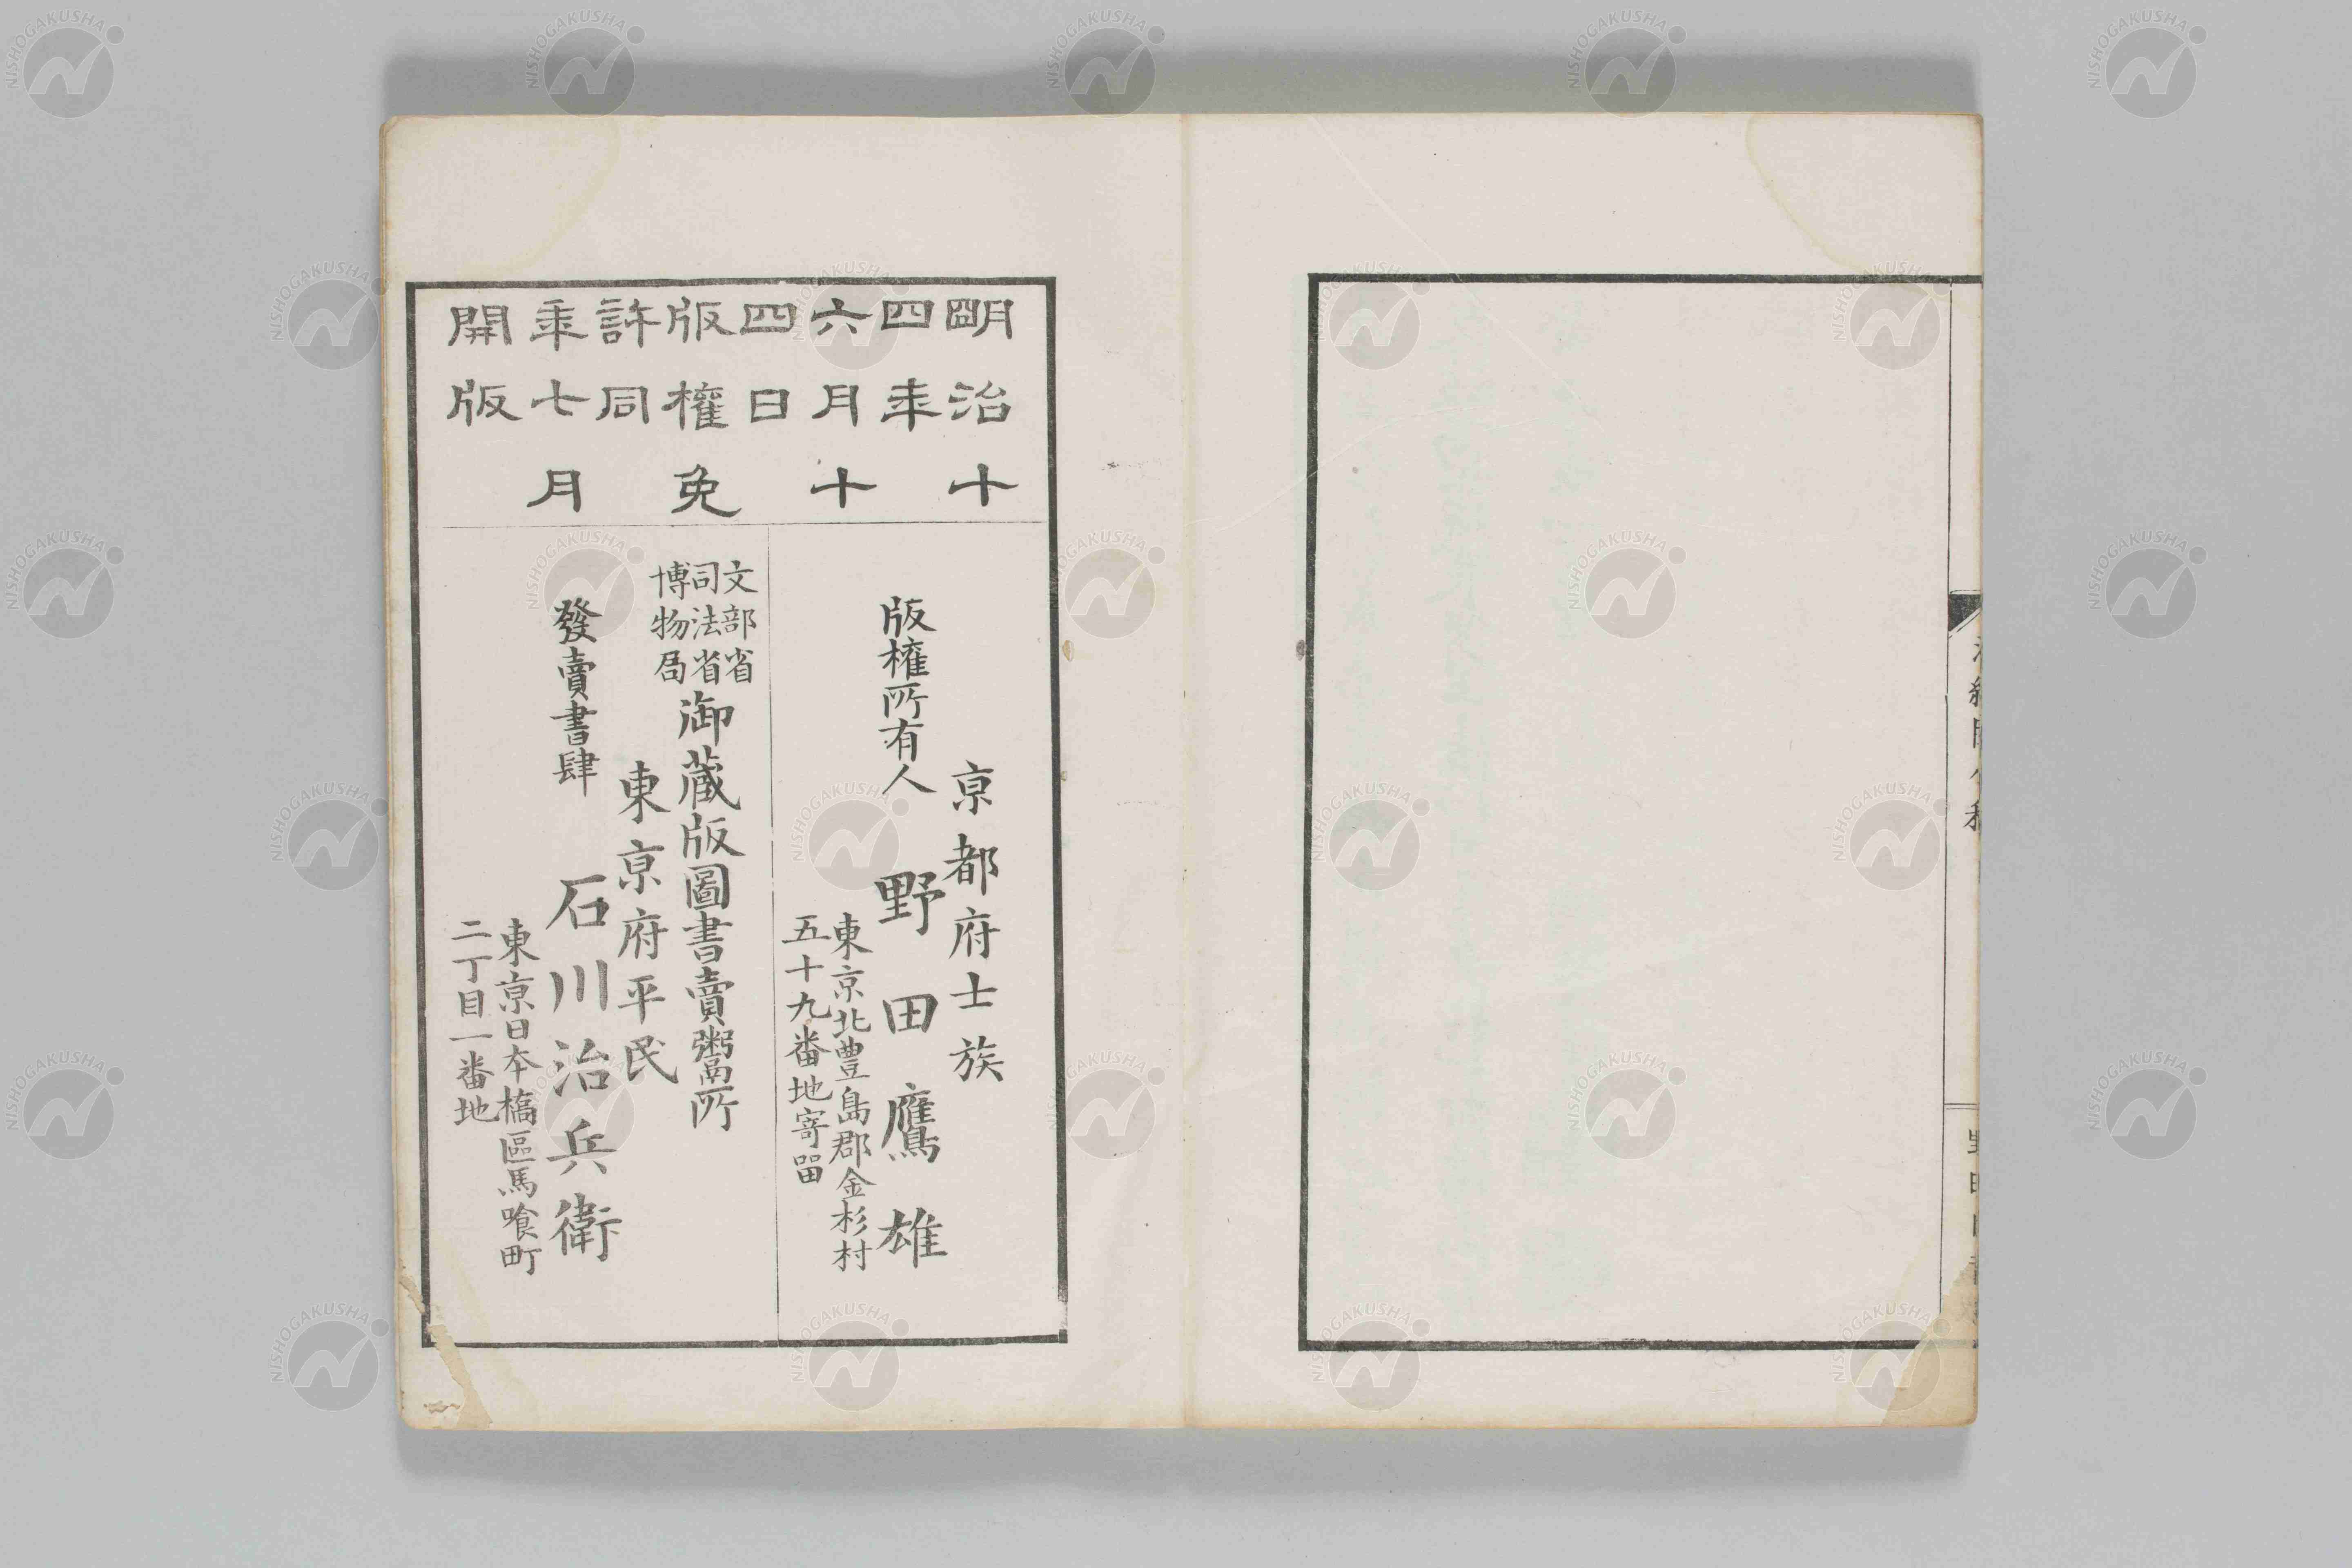 明治十
四年
六月十
四日
版權免
許同
年七月
開版
京都府士族
版權所有人 野田鷹雄
東京北豊島郡金杉村
五十九番地寄留
文部省
司法省
博物局
御蔵版圖書賣鬻所
東京府平民
發賣書肆 石川治兵衛
東京日本橋區馬喰町
二丁目一番地
NISHOGAKUSHA